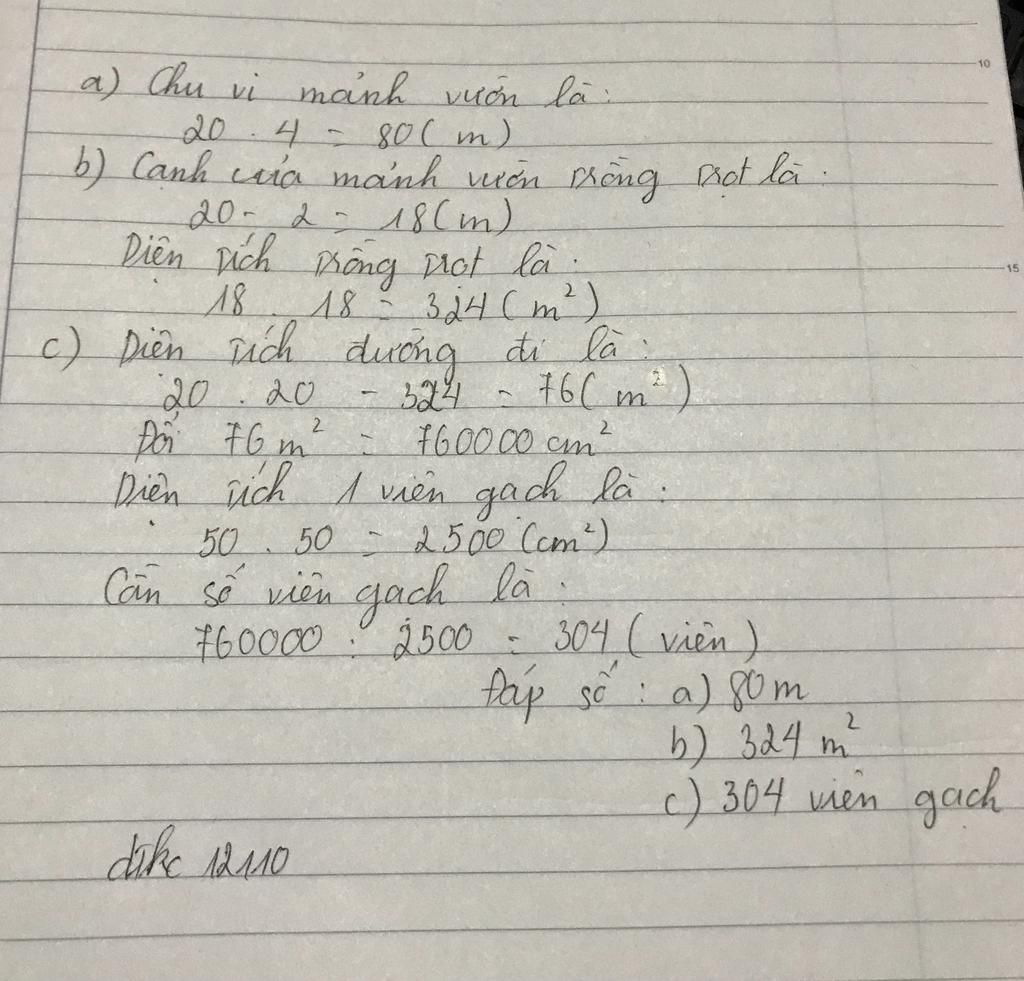 a) Chu vi mảnh vườn là:
20 . 4 = 80 (m)
10
b) Cạnh của mảnh vườn trồng trọt là:
20 - 2 = 18 (m)
Diện tích trồng trọt là:
15
18 . 18 = 324 (m²)
c) Diện tích đường đi là:
20 . 20 - 324 = 76 (m²)
Đổi 76 m² = 760000 cm²
Diện tích 1 viên gạch là:
50 . 50 = 2500 (cm²)
Cần số viên gạch là:
760000 : 2500 = 304 (viên)
Đáp số: a) 80 m
b) 324 m²
c) 304 viên gạch
dtkc 12110